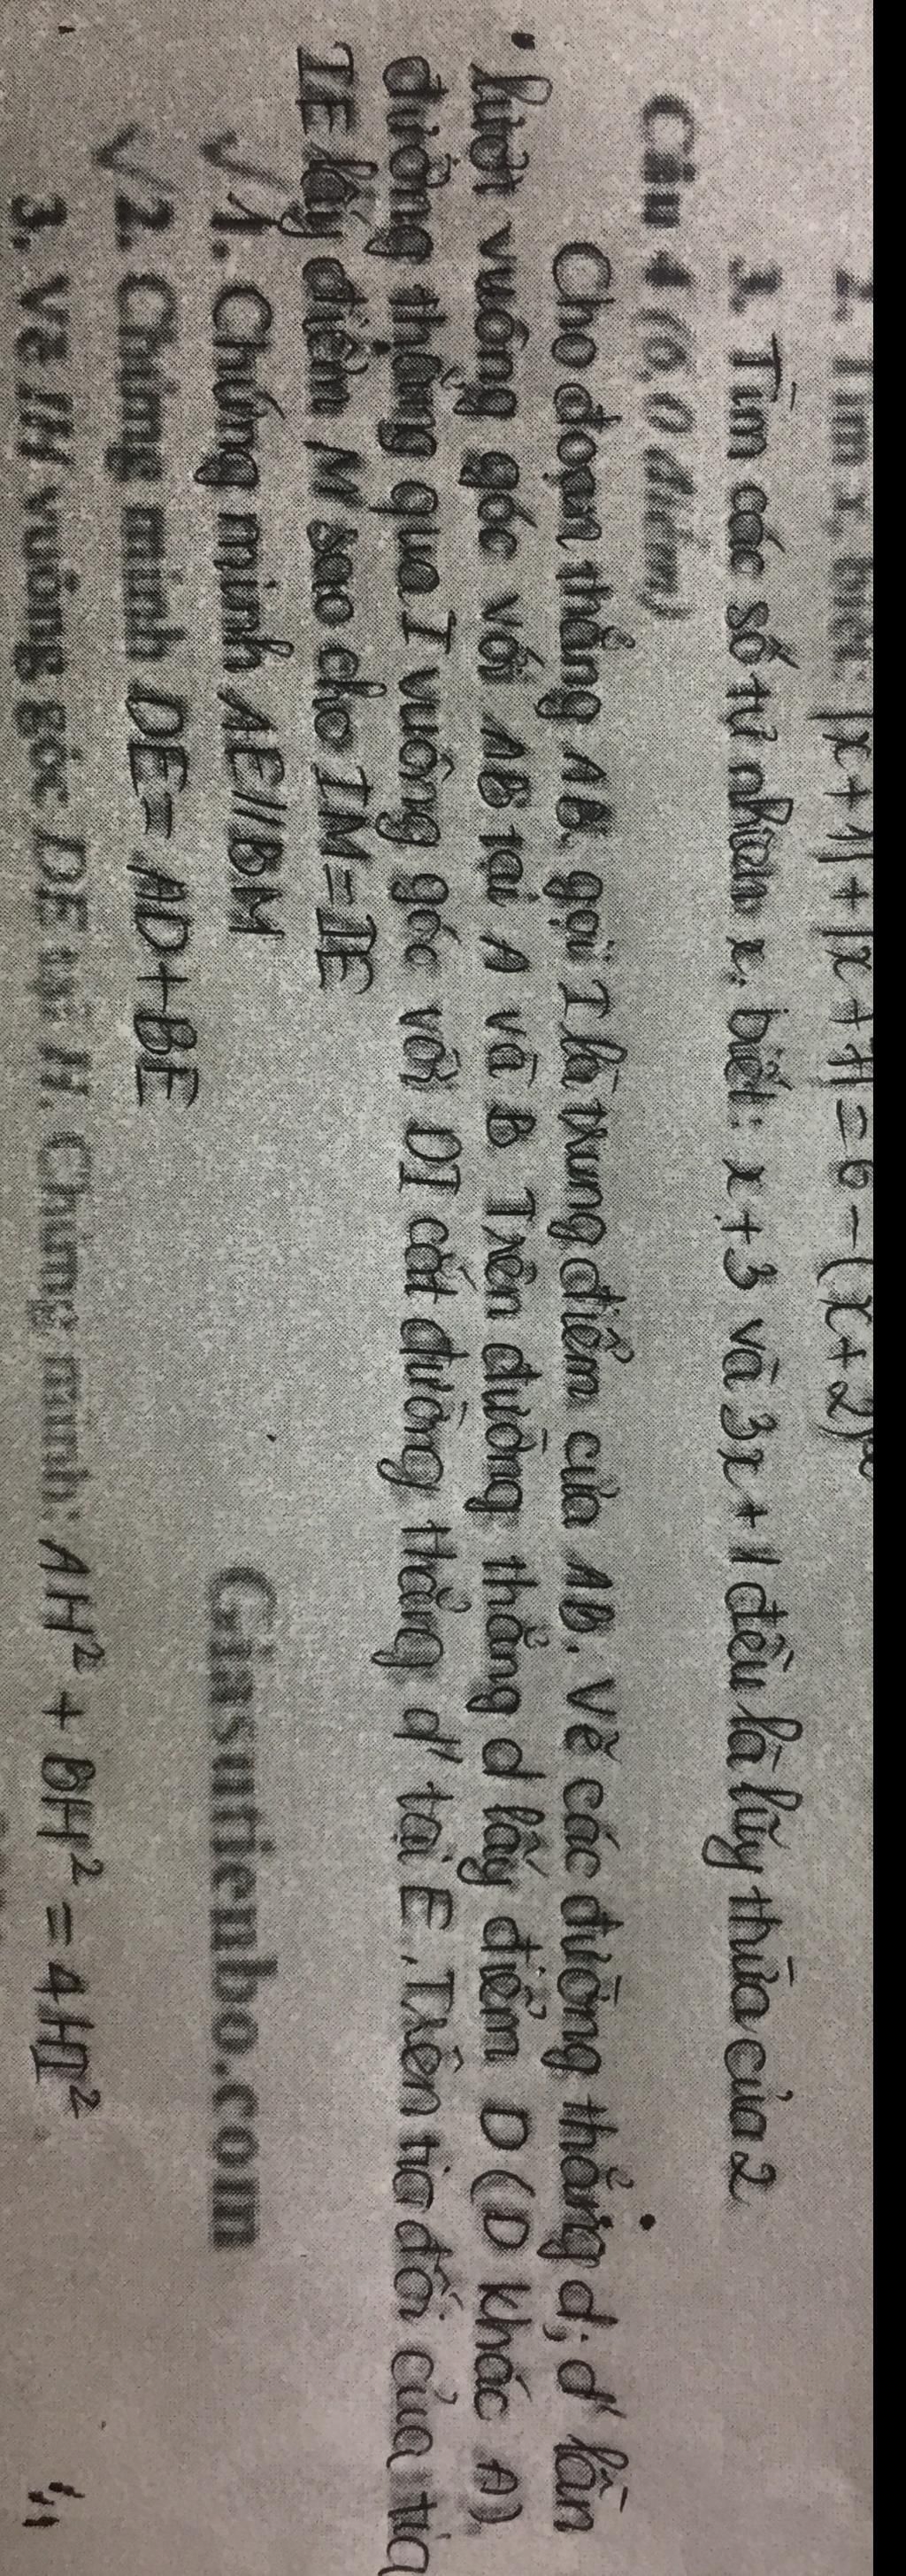 2. Tìm x, biết: |x + 1| + |x + 1| = 6 - (x + 2)
3. Tìm các số tự nhiên x, biết: x + 3 và 3x + 1 đều là lũy thừa của 2
Câu 4 (6,0 điểm)
Cho đoạn thẳng AB, gọi I là trung điểm của AB. Vẽ các đường thẳng d; d' lần
lượt vuông góc với AB tại A và B Trên đường thẳng d lấy điểm D (D khác A)
đường thẳng qua I vuông góc với DI cắt đường thẳng d' tại E. Trên tia đối của tia
IE lấy điểm M sao cho IM = IE
1. Chứng minh AE//BM
Giasutienbo.com
2. Chứng minh DE = AD + BE
3. Vẽ IH vuông góc DE tại H. Chứng minh: AH² + BH² = 4HI²